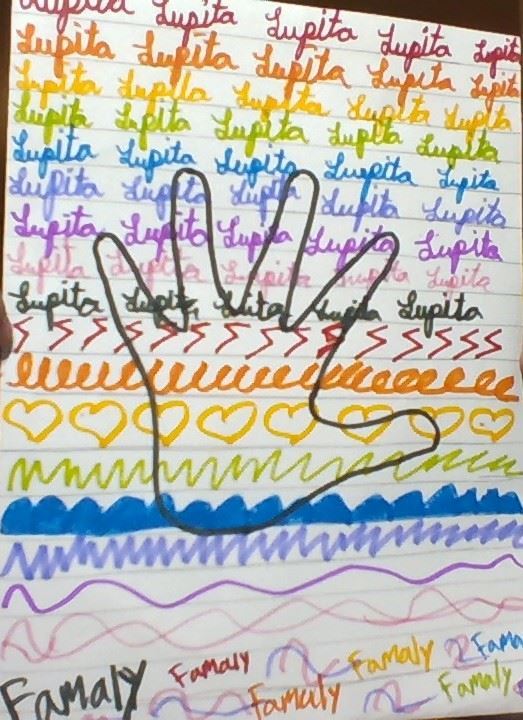 Lupita Lupita Lupita Lupita Lupita
Lupita Lupita Lupita Lupita Lupita
Lupita Lupita Lupita Lupita Lupita
Lupita Lupita Lupita Lupita Lupita
Lupita Lupita Lupita Lupita Lupita
Lupita Lupita Lupita Lupita Lupita
Lupita Lupita Lupita Lupita Lupita
Lupita Lupita Lupita Lupita Lupita
Lupita Lupita Lupita Lupita Lupita
Famaly Famaly Fama
Famaly Famaly Famaly